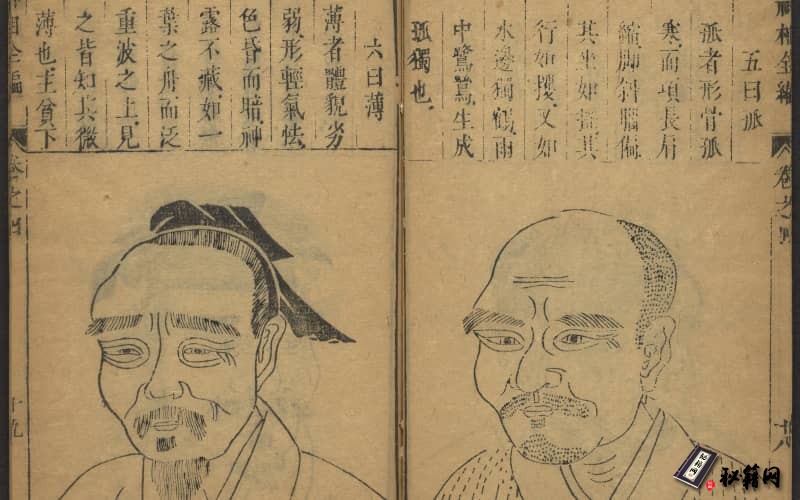 五曰孤
孤者形骨孤
寒而項長肩
縮脚斜腦偏
其坐如
行如攫又如
水邊獨鶴雨
中鷺鷥生成
孤獨也
六曰薄
薄者體貌劣
弱形輕氣怯
色昏而暗神
露不藏如一
葉之舟而泛
重波之上見
之皆知其微
薄也主貧下
神相全編
卷之四
十八
相全編
卷之四
十九
秘籍网